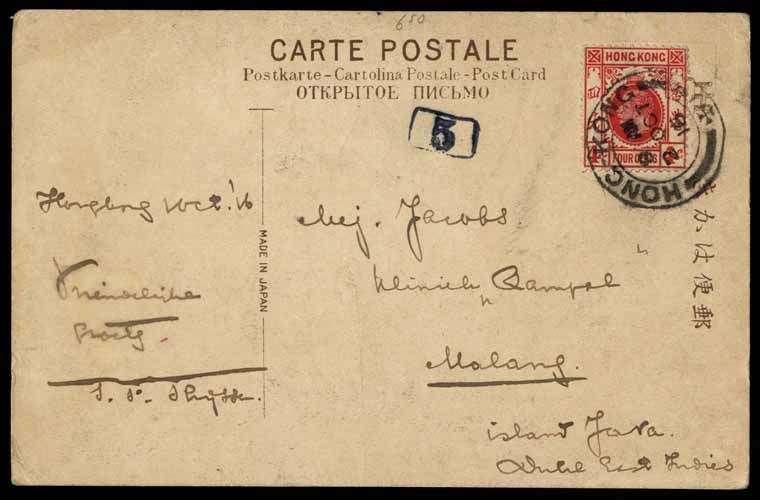 650
CARTE POSTALE
Postkarte - Cartolina Postale - Post Card
ОТКРЫТОЕ ПИСЬМО
HONG KONG
FOUR CENTS
HONG-KONG
OCT
16
5
きかは便郵
MADE IN JAPAN
Hongkong 10 Oct. '16
Vriendelijke
Mej. Jacobs.
Kliniek "Rampal"
Malang.
island Java.
Dutch East Indies